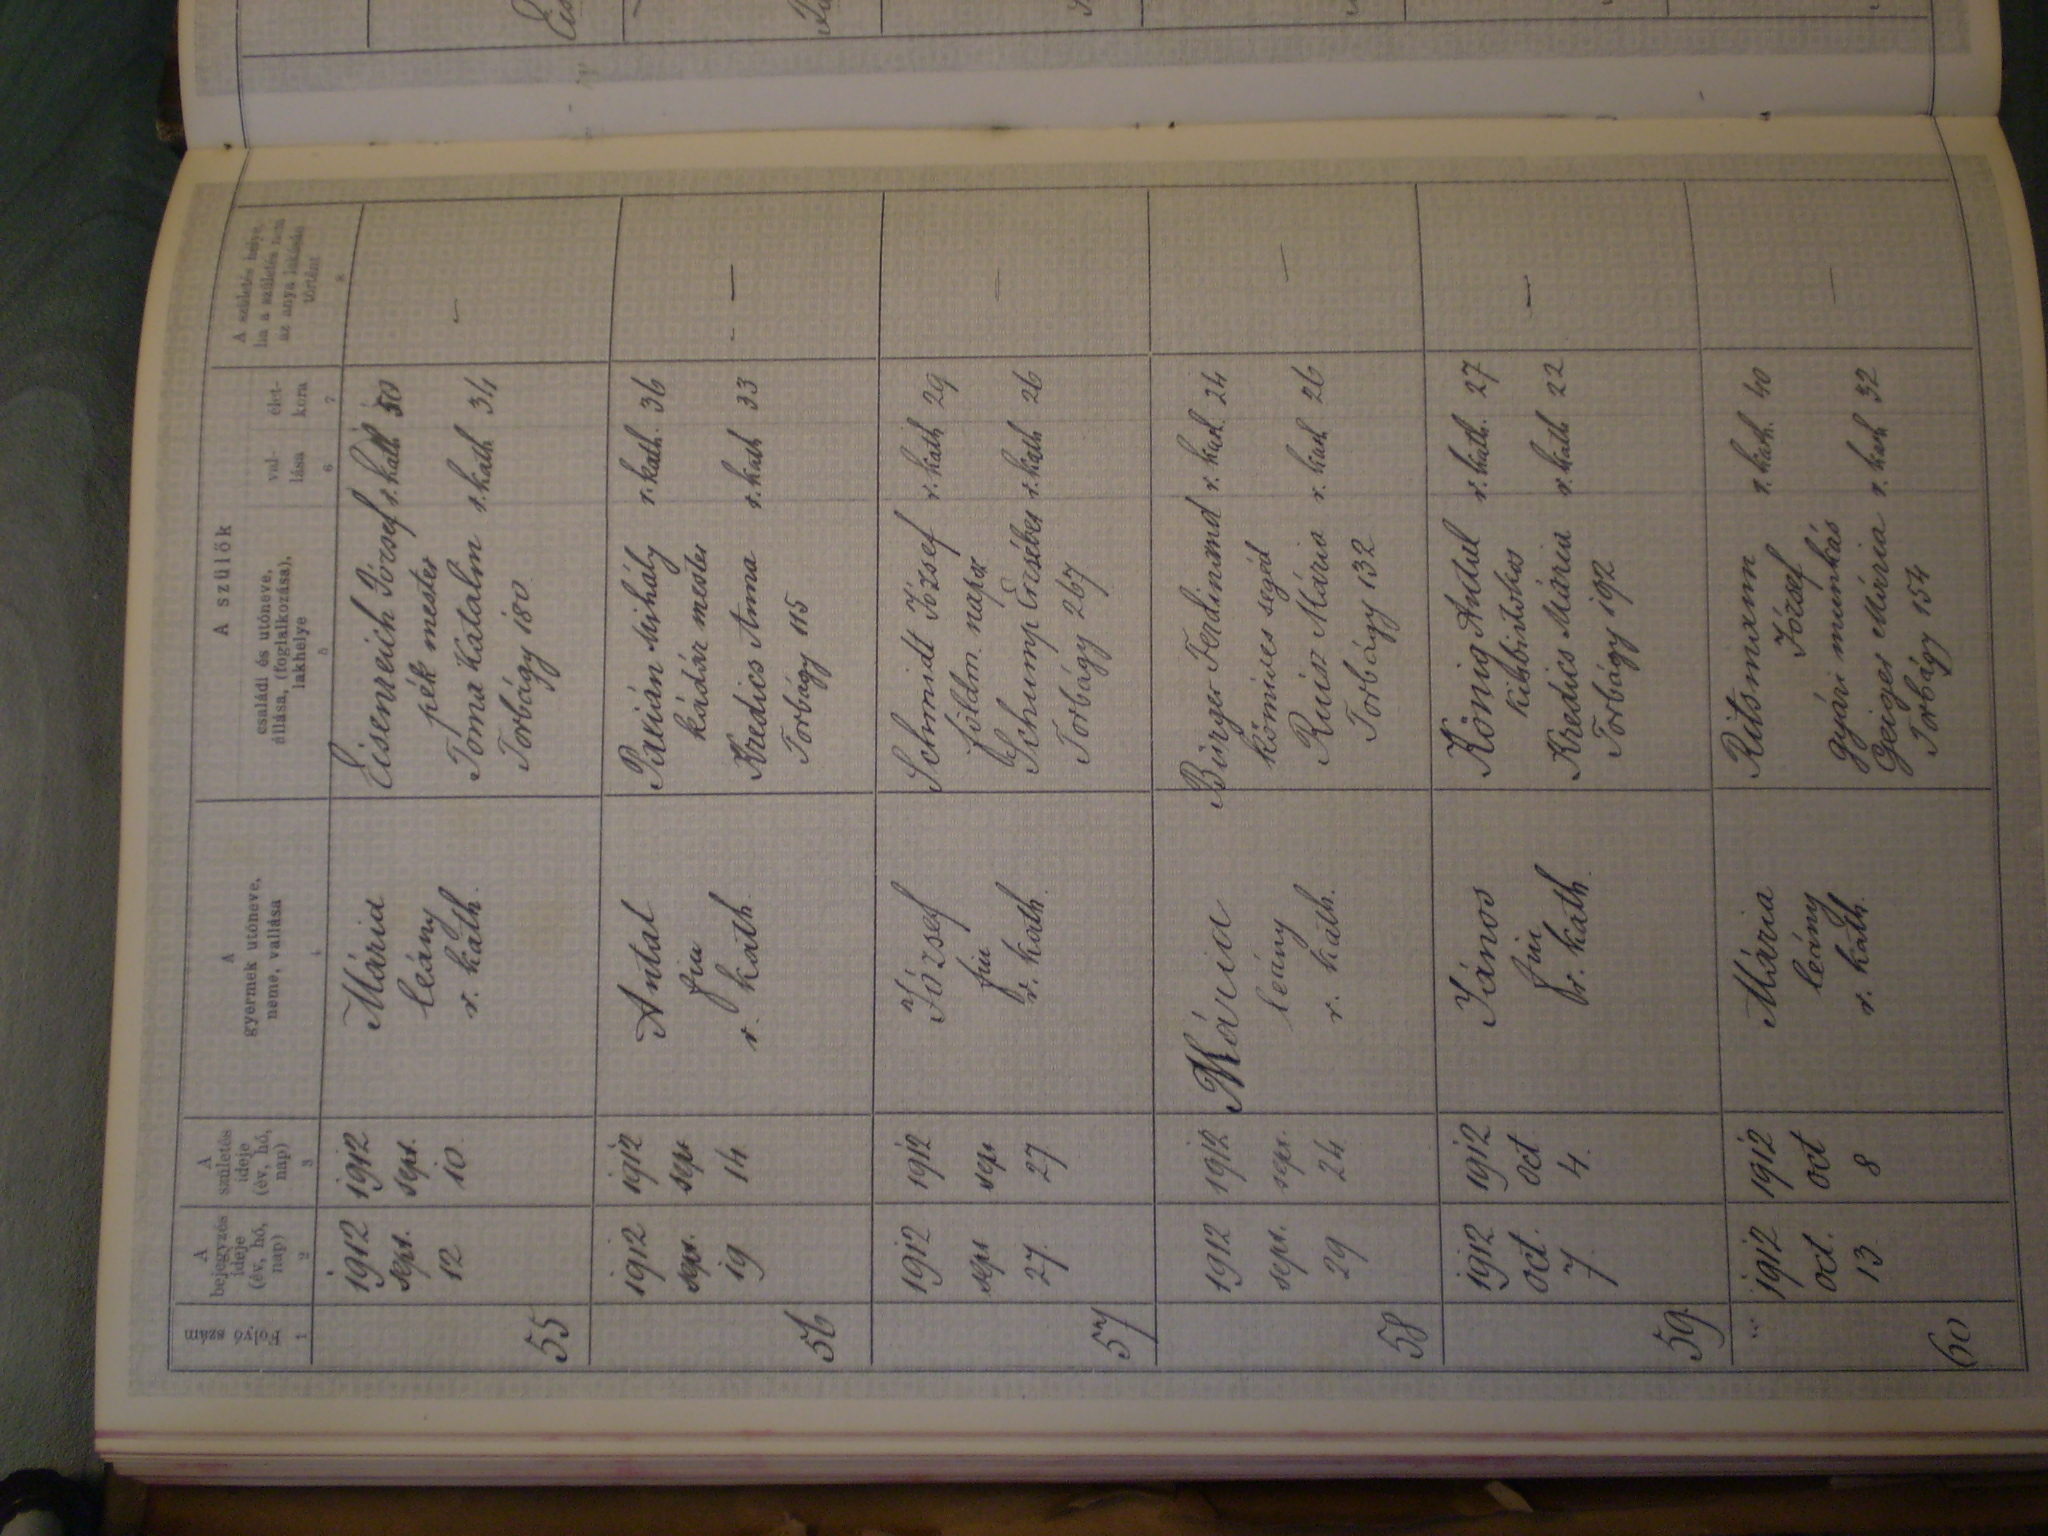 Folyó szám
1
A bejegyzés ideje (év, hó, nap)
2
A születés ideje (év, hó, nap)
3
A gyermek utóneve, neme, vallása
4
A szülők
családi és utóneve, állása, (foglalkozása), lakhelye
5
val-lása
6
élet-kora
7
A születés helye, ha a születés nem az anya lakásán történt
8
55
1912 sept. 12
1912 sept. 10
Mária
leány
r. kath.
Eisenreich József r. kath 30
pék mester
Toma Katalin r. kath 34
Torbágy 180
—
56
1912 sept. 19
1912 sept 14
Antal
fiu
r. kath.
Mihály r. kath. 36
kádár mester
Kredics Anna r. kath 33
Torbágy 115
—
57
1912 sept 27
1912 sept 27
József
fiu
r. kath.
Schmidt József r. kath 29
földm. napsz
Schump Erzsébet r. kath 26
Torbágy 267
—
58
1912 sept. 29
1912 sept. 24
Mária
leány
r. kath.
Burger Ferdinand r. kath. 24
kőmives segéd
Mária r. kath 26
Torbágy 132
—
59.
1912 oct. 7
1912 oct 4.
János
fiu
r. kath.
König Antal r. kath. 27
kisbirtokos
Kredics Mária r. kath 22
Torbágy 192
—
60
1912 oct. 13
1912 oct 8
Mária
leány
r. kath.
Ritsmann r. kath. 40
József
gyári munkás
Geiger Mária r. kath 32
Torbágy 154
—